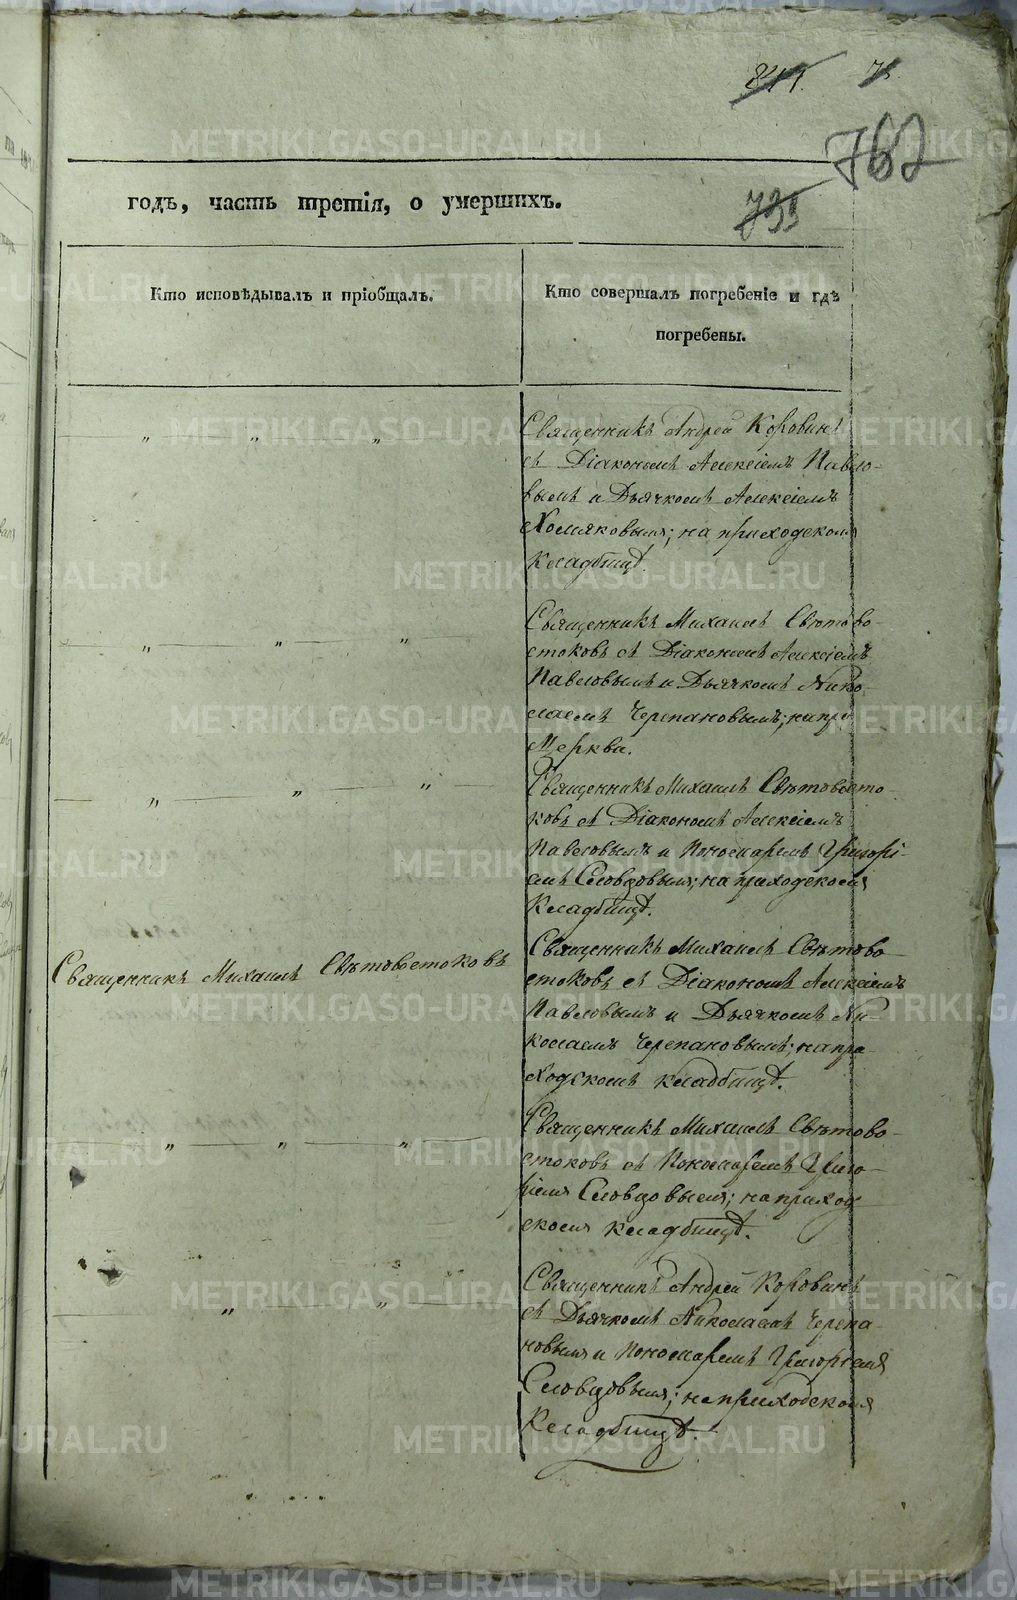 75.
767
годъ, часть третія, о умершихъ.
735
Кто исповѣдывалъ и пріобщалъ.
Кто совершалъ погребеніе и гдѣ
погребены.
Священникъ Андрей Коровинъ
съ Діакономъ Алексіемъ Павло-
вымъ и Дьячкомъ Алексіемъ
Хомяковымъ; на приходскомъ
кладбищѣ.
Священникъ Михаилъ Свѣтово-
стоковъ съ Діакономъ Алексіемъ
Павловымъ и Дьячкомъ Нико-
лаемъ Черепановымъ; на при
Церкви.
Священникъ Михаилъ Свѣтовосто-
ковъ съ Діакономъ Алексіемъ
Павловымъ и Пономаремъ Григорі-
емъ Словцовымъ; на приходскомъ
Кладбищѣ.
Священникъ Михаилъ Свѣтовостоковъ
Священникъ Михаилъ Свѣтово-
стоковъ съ Діакономъ Алексіемъ
Павловымъ и Дьячкомъ Ни-
колаемъ Черепановымъ; на при-
ходскомъ кладбищѣ.
Священникъ Михаилъ Свѣтово-
стоковъ съ Пономаремъ Григо-
ріемъ Словцовымъ; на приход
скомъ кладбищѣ.
Священникъ Андрей Коровинъ
съ Дьячкомъ Николаемъ Черепа-
новымъ и Пономаремъ Григоріемъ
Словцовымъ; на приходскомъ
Кладбищѣ.
METRIKI.GASO-URAL.RU